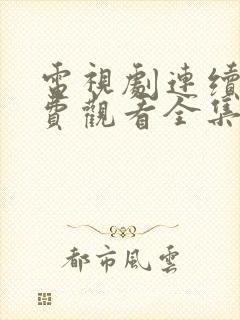 電視劇連續
費觀看全集
都市風雲